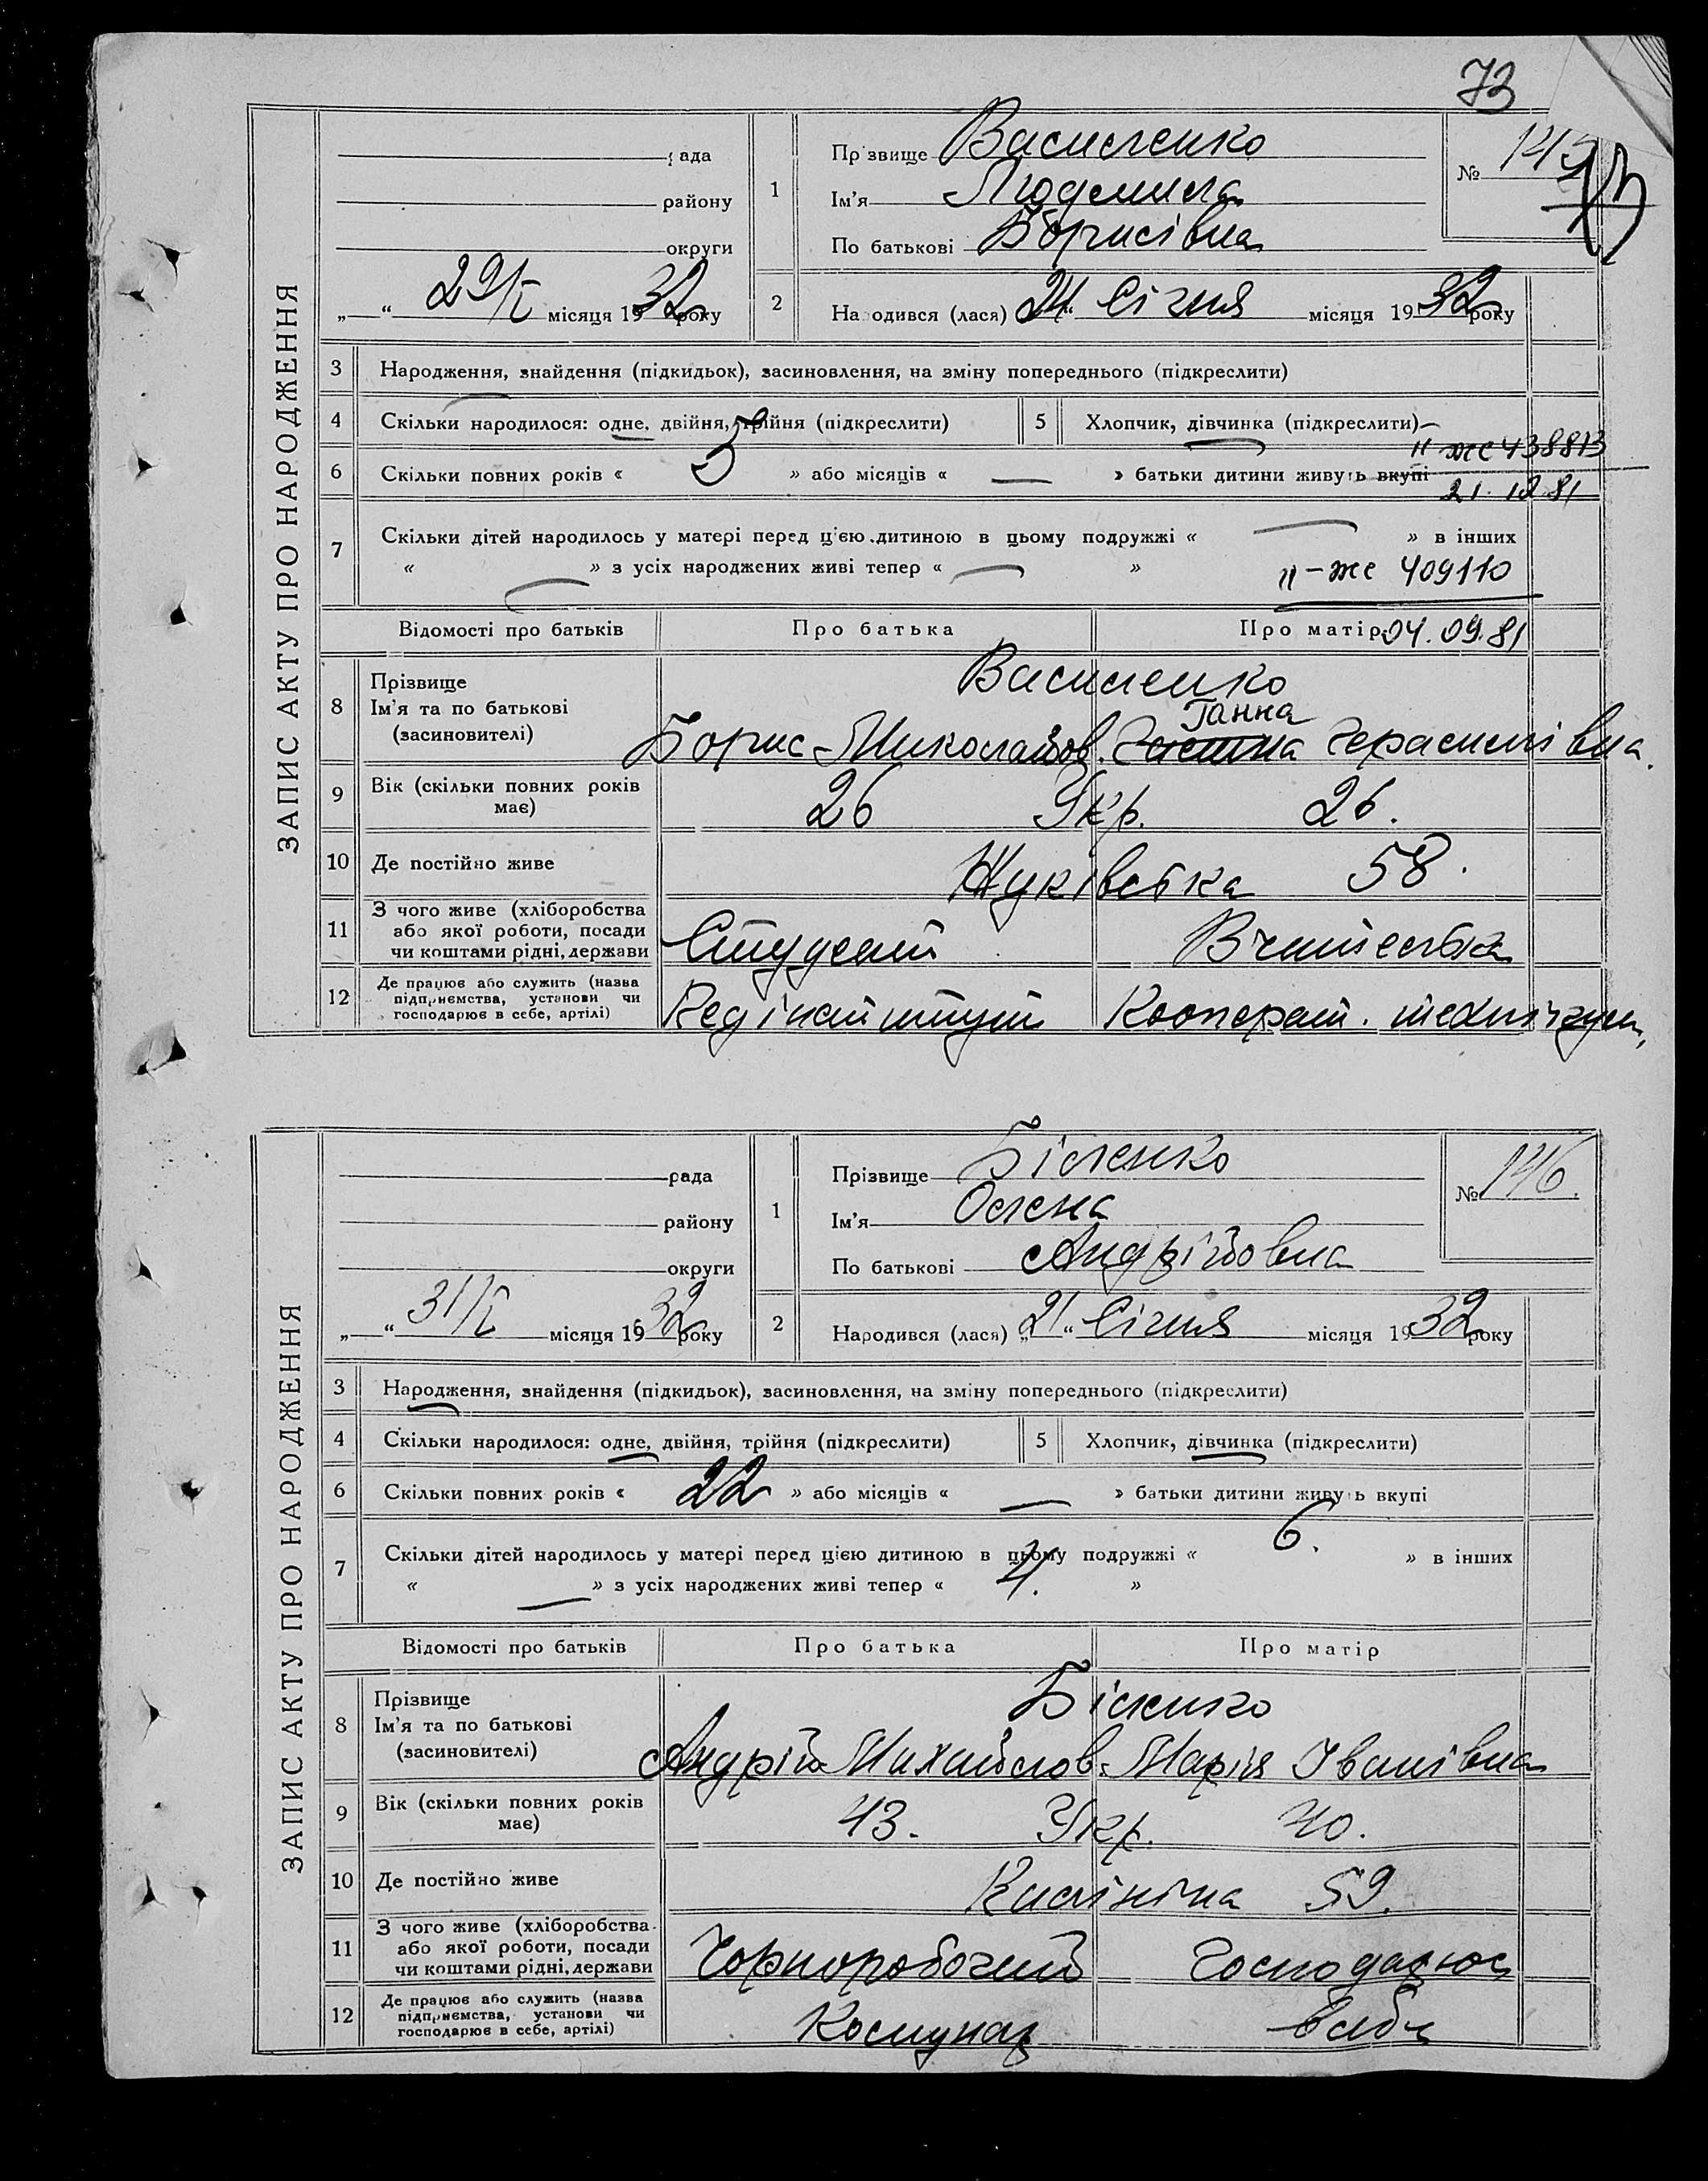 73
ЗАПИС АКТУ ПРО НАРОДЖЕННЯ
рада
району
округи
„ “ 29/I місяця 1932 року
1 Прізвище Василенко
Ім'я Людмила
По батькові Борисівна
№ 145
2 Народився (лася) „24“ Січня місяця 1932 року
3 Народження, знайдення (підкидьок), засиновлення, на зміну попереднього (підкреслити)
4 Скільки народилося: одне, двійня, трійня (підкреслити)
5 Хлопчик, дівчинка (підкреслити)
II же 438813
6 Скільки повних років « 5 » або місяців « — » батьки дитини живуть вкупі
21.12.81
7 Скільки дітей народилось у матері перед цією дитиною в цьому подружжі « — » в інших
« — » з усіх народжених живі тепер « — »
II-же 409110
Відомості про батьків Про батька Про матір 04.09.81
8 Прізвище Ім'я та по батькові (засновителі)
Василенко
Ганна
Борис Миколайов. Герасимівна
9 Вік (скільки повних років має) 26 Укр. 26.
10 Де постійно живе Жуківська 58.
11 З чого живе (хліборобства або якої роботи, посади чи коштами рідні, держави Студент Вчителька
12 Де працює або служить (назва підприємства, установи чи господарює в себе, артілі) Педінститут Кооперат. технікум,
ЗАПИС АКТУ ПРО НАРОДЖЕННЯ
рада
району
округи
„ “ 31/I місяця 1932 року
1 Прізвище Біленко
Ім'я Олена
По батькові Андрійовна
№ 146.
2 Народився (лася) „21“ Січня місяця 1932 року
3 Народження, знайдення (підкидьок), засиновлення, на зміну попереднього (підкреслити)
4 Скільки народилося: одне, двійня, трійня (підкреслити)
5 Хлопчик, дівчинка (підкреслити)
6 Скільки повних років « 22 » або місяців « — » батьки дитини живуть вкупі
7 Скільки дітей народилось у матері перед цією дитиною в цьому подружжі « 6. » в інших
« — » з усіх народжених живі тепер « 4. »
Відомості про батьків Про батька Про матір
8 Прізвище Ім'я та по батькові (засиновителі)
Біленко
Андрій Михайлов. Марія Іванівна
9 Вік (скільки повних років має) 43. Укр. 40.
10 Де постійно живе Калініна 59.
11 З чого живе (хліборобства або якої роботи, посади чи коштами рідні, держави Чорноробочий Господарює
12 Де працює або служить (назва підприємства, установи чи господарює в себе, артілі) Комунах в себе